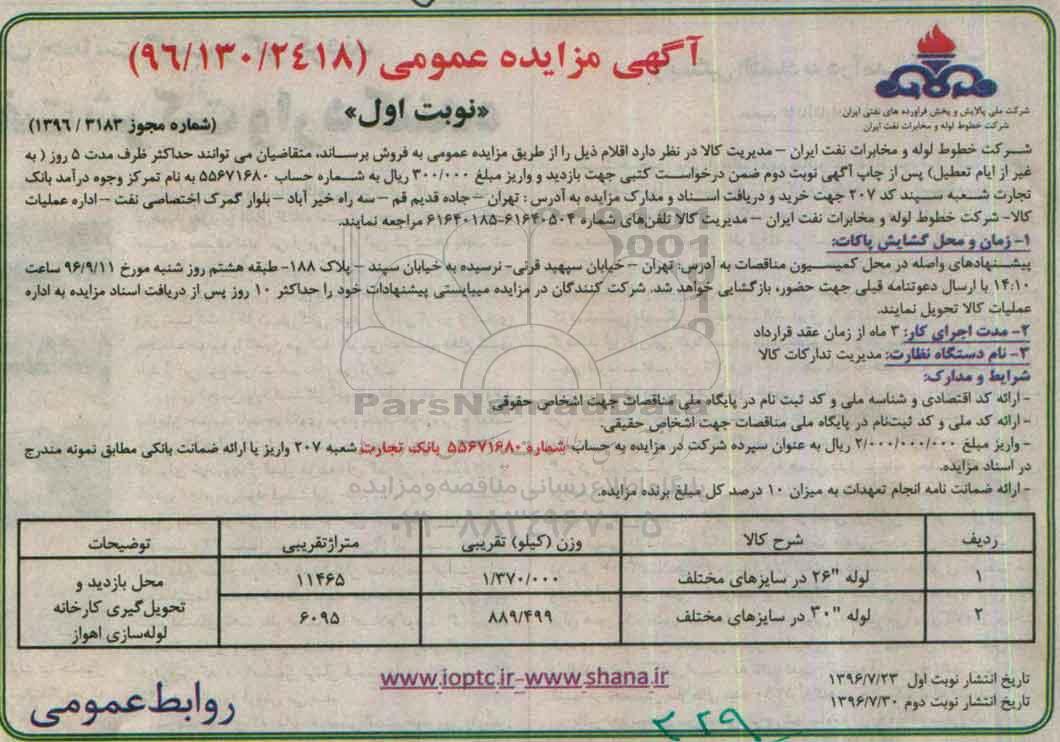 آگهی مزایده عمومی (۹۶/۱۳۰/۲٤۱۸)
«نوبت اول»
(شماره مجوز ۳۱۸۳ / ۱۳۹٦)
شرکت ملی پالایش و پخش فرآورده های نفتی ایران
شرکت خطوط لوله و مخابرات نفت ایران
شرکت خطوط لوله و مخابرات نفت ایران – مدیریت کالا در نظر دارد اقلام ذیل را از طریق مزایده عمومی به فروش برساند، متقاضیان می توانند حداکثر ظرف مدت ۵ روز ( به
غیر از ایام تعطیل) پس از چاپ آگهی نوبت دوم ضمن درخواست کتبی جهت بازدید و واریز مبلغ ۳۰۰/۰۰۰ ریال به شماره حساب ۵۵۶۷۱۶۸۰ به نام تمرکز وجوه درآمد بانک
تجارت شعبه سپند کد ۲۰۷ جهت خرید و دریافت اسناد و مدارک مزایده به آدرس : تهران – جاده قدیم قم – سه راه خیر آباد – بلوار گمرک اختصاصی نفت – اداره عملیات
کالا- شرکت خطوط لوله و مخابرات نفت ایران – مدیریت کالا تلفن‌های شماره ۶۱۶۴۰۵۰۴-۶۱۶۴۰۱۸۵ مراجعه نمایند.
۱- زمان و محل گشایش پاکات:
پیشنهادهای واصله در محل کمیسیون مناقصات به آدرس: تهران – خیابان سپهبد قرنی- نرسیده به خیابان سپند – پلاک ۱۸۸- طبقه هشتم روز شنبه مورخ ۹۶/۹/۱۱ ساعت
۱۴:۱۰ با ارسال دعوتنامه قبلی جهت حضور، بازگشایی خواهد شد. شرکت کنندگان در مزایده میبایستی پیشنهادات خود را حداکثر ۱۰ روز پس از دریافت اسناد مزایده به اداره
عملیات کالا تحویل نمایند.
۲- مدت اجرای کار: ۳ ماه از زمان عقد قرارداد
۳- نام دستگاه نظارت: مدیریت تدارکات کالا
شرایط و مدارک:
- ارائه کد اقتصادی و شناسه ملی و کد ثبت نام در پایگاه ملی مناقصات جهت اشخاص حقوقی
- ارائه کد ملی و کد ثبت‌نام در پایگاه ملی مناقصات جهت اشخاص حقیقی.
- واریز مبلغ ۲/۰۰۰/۰۰۰/۰۰۰ ریال به عنوان سپرده شرکت در مزایده به حساب شماره ۵۵۶۷۱۶۸۰ بانک تجارت شعبه ۲۰۷ واریز یا ارائه ضمانت بانکی مطابق نمونه مندرج
در اسناد مزایده.
- ارائه ضمانت نامه انجام تعهدات به میزان ۱۰ درصد کل مبلغ برنده مزایده.
ParsNamadData
۰۲۱-۸۸۳۴۹۶۷۰-۵
ردیف شرح کالا وزن (کیلو) تقریبی متراژتقریبی توضیحات
۱ لوله "۲۶ در سایزهای مختلف ۱/۳۷۰/۰۰۰ ۱۱۴۶۵ محل بازدید و
تحویل‌گیری کارخانه
لوله‌سازی اهواز
۲ لوله "۳۰ در سایزهای مختلف ۸۸۹/۴۹۹ ۶۰۹۵
تاریخ انتشار نوبت اول ۱۳۹۶/۷/۲۳
تاریخ انتشار نوبت دوم ۱۳۹۶/۷/۳۰
www.ioptc.ir-www.shana.ir
روابط عمومی
۳۲۹